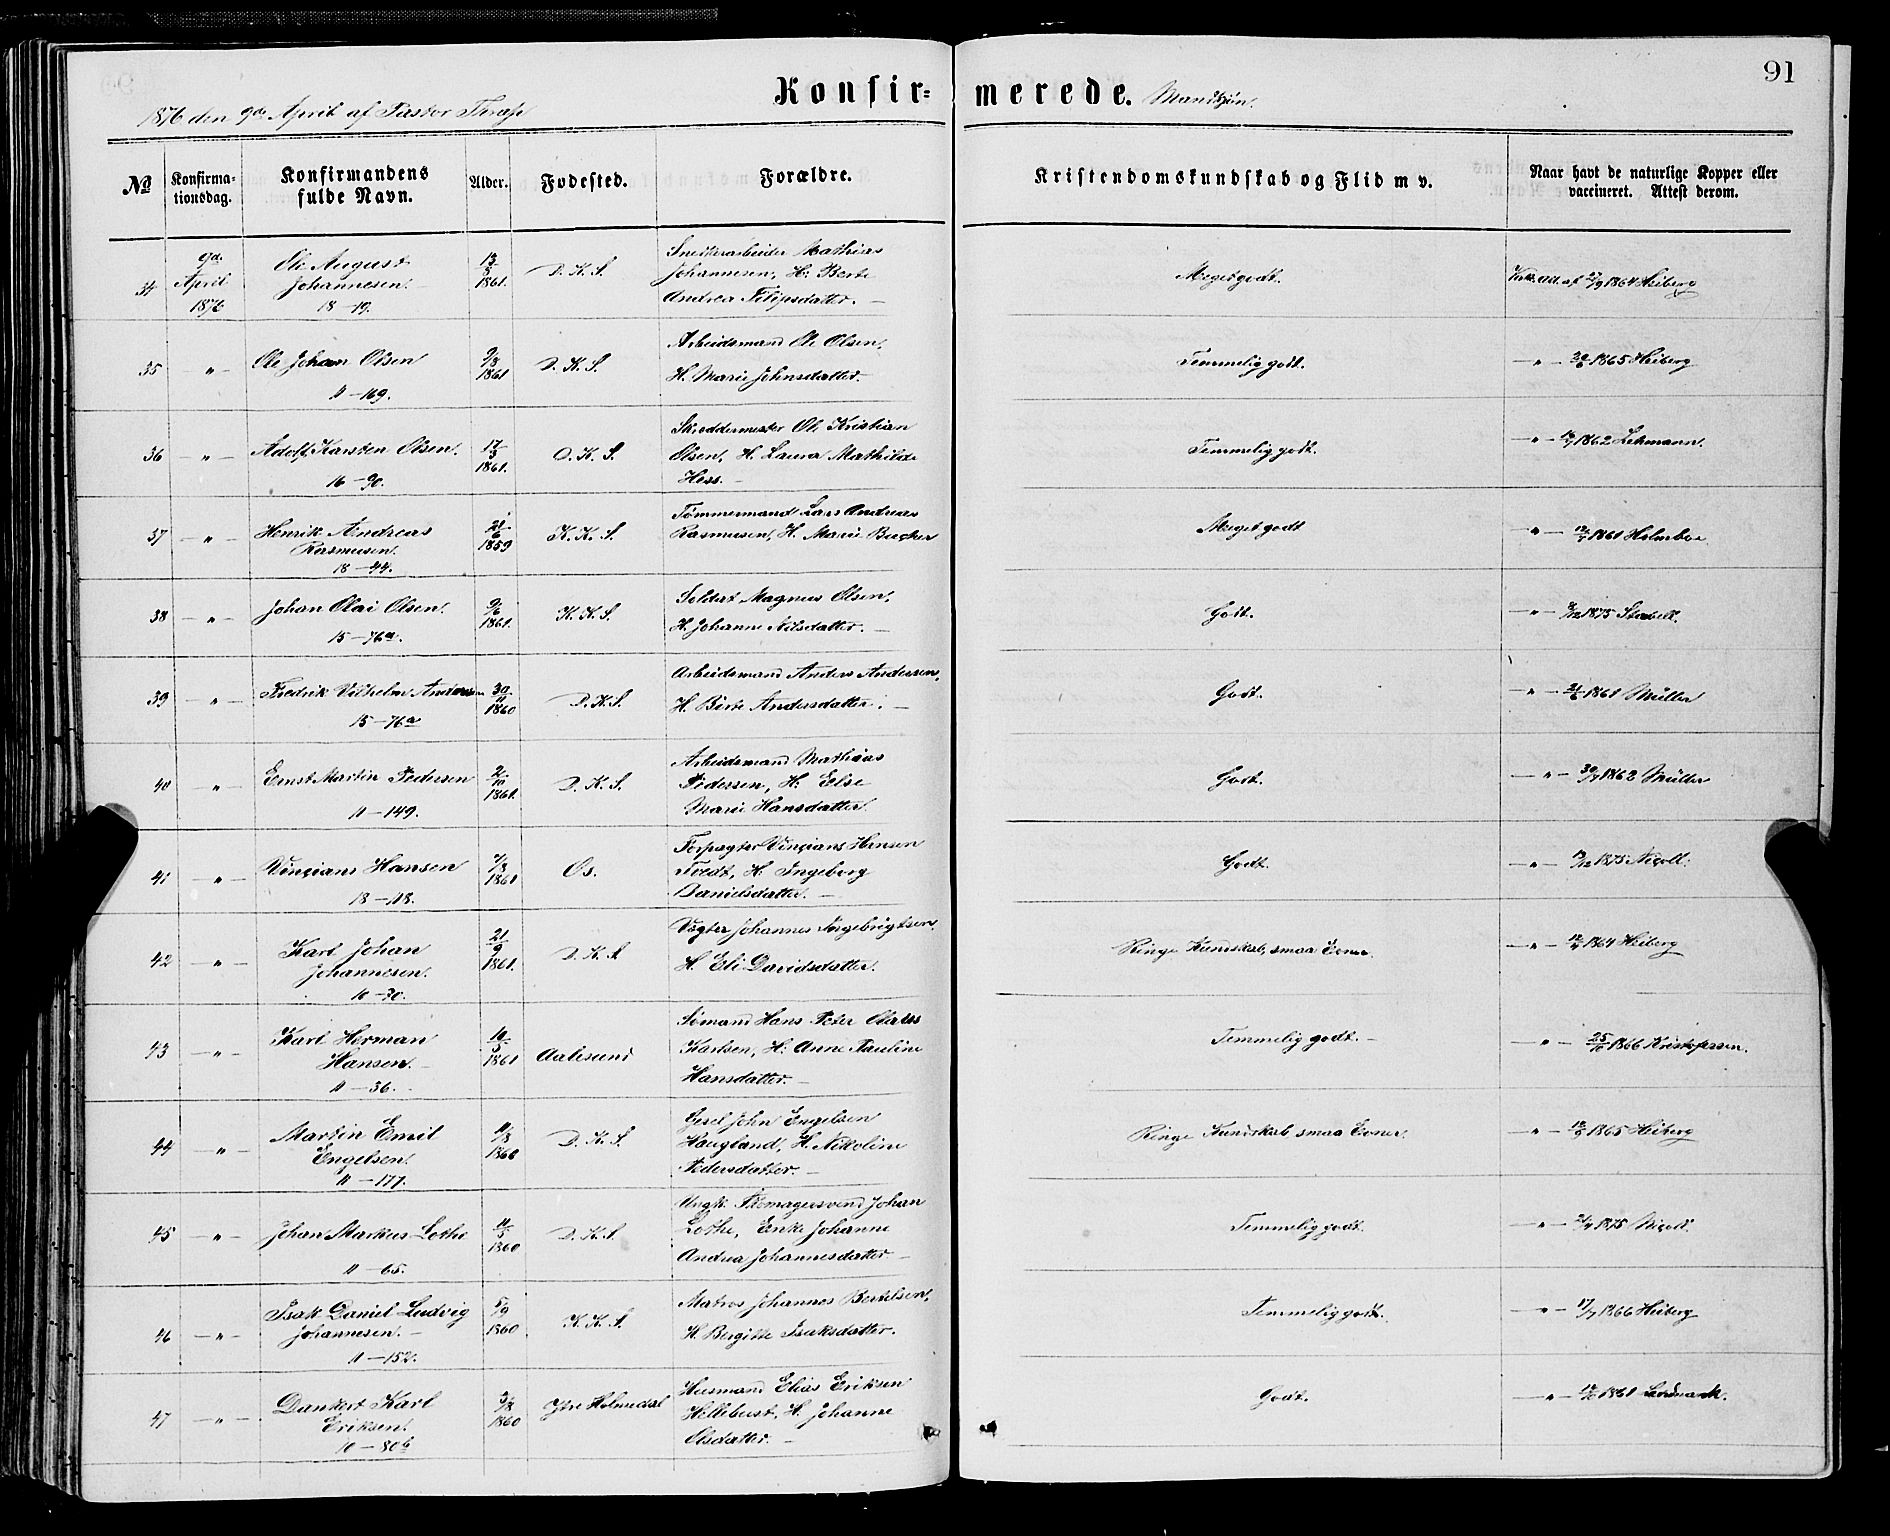 91
Konfir= merede. Mandkjøn.
1876 den 9de April af Pastor
No Konfirma-tionsdag. Konfirmandens fulde Navn. Alder. Fødested. Forældre. Kristendomskundskab og Flid m v. Naar havt de naturlige Kopper eller vaccineret. Attest derom.
34 9de April 1876 Ole August Johannesen. 18-19. 13/3 1861. D. K. S. Snedkerarbeider Mathias Johannesen, H: Berte Andrea Filipsdatter. — Meget godt. Vak. Att. af 27/9 1864 Heiberg
35 — " — Ole Johan Olsen 11-169. 9/8 1861 D. K. S. Arbeidsmand Ole Olsen, H. Marie Johnsdatter. Temmelig godt. — " — 1865 Heiberg
36 — " — Adolf Karsten Olsen. 16-90. 17/3 1861. D. K. S. Skreddermester Ole Kristian Olsen, H. Laura Mathilde Hess. — Temmelig godt. — " — 1862 Lehmann.
37 — " — Henrik Andreas Rasmusen. 18-44. 21/6 1859 K. K. S. Tømmermand Lars Andreas Rasmusen, H. Marie Meget godt — " — 1861 Holmboe
38 — " — Johan Olai Olsen. 15-76a. 9/6 1861. K. K. S. Soldat Magnus Olsen, H. Johanne Nilsdatter. — Godt. — " — 1875 Stabell.
39 — " — Fredrik Vilhelm Andersen 15-76a 30/11 1860 D. K. S. Arbeidsmand Anders Andersen, H. Birte Andersdatter. — Godt. — " — 1861 Müller
40 — " — Ernst Martin Pedersen 11-149. 2/10 1861. D. K. S. Arbeidsmand Mathias Pedersen, H: Else Marie Hansdatter. Godt. — " — 1862 Müller
41 — " — Vinzians Hansen 18-118. 7/8 1861 Os. Forpagter Vinzians Hansen Tvedt, H. Ingeborg Danielsdatter. — Godt. — " — 1875 Nicoll.
42 — " — Karl Johan Johannesen. 10-30. 21/9 1861. D. K. S. Vegter Johannes Ingebrigtsen, H. Eli Davidsdatter. Ringe Kundskab, smaa Evner. — " — 1864 Heiberg
43 — " — Karl Herman Hansen. 11-36. 10/5 1861 Aalesund Sømand Hans Peter Karlsen, H: Anne Pauline Hansdatter. — Temmelig godt. — — " — 25/10 1866 Kristofersen.
44 — " — Martin Emil Engelsen. 11-177. 11/8 1860 D. K. S. John Engelsen Haugland, H. Nikoline Pedersdatter. — Ringe Kundskab smaa Evner. — " — 1865 Heiberg
45 — " — Johan Markus Lothe 11-65. 11/5 1860 D. K. S. Skomagersvend Johan Lothe, Enke Johanne Andrea Johannesdatter — Temmelig godt. — " — 1875 Nicoll.
46 — " — Isak Daniel Ludvig Johannesen. — 11-152. 5/9 1860 K. K. S. Matros Johannes Bertelsen, H. Bergitte Isaksdatter. Temmelig godt. — " — 17/7 1866 Heiberg
47 — " — Dankert Karl Eriksen. 10-80b 3/8 1860 Ytre Holmedal Husmand Elias Eriksen Hellebust, H. Johanne Olsdatter. — Godt. — " — 1861 Landmark.